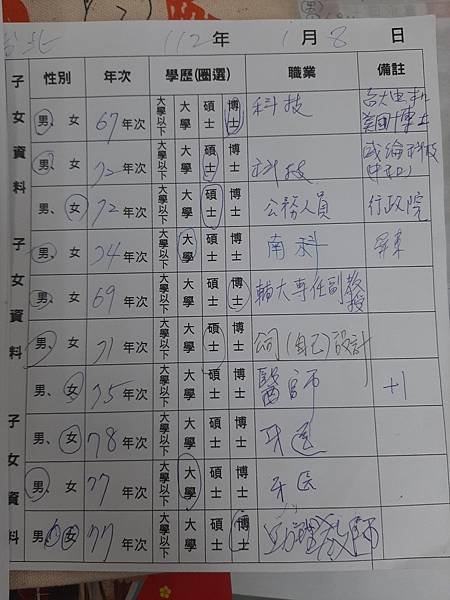 台北 112年 1月8日
子女資料 性別 年次 學歷(圈選) 職業 備註
男、女 67年次 大學以下 大學 碩士 博士 科技 台大電機
美國博士
男、女 72年次 大學以下 大學 碩士 博士 科技 威綸科技
男、女 72年次 大學以下 大學 碩士 博士 公務人員 行政院
子女資料 男、女 74年次 大學以下 大學 碩士 博士 南科 屏東
男、女 69年次 大學以下 大學 碩士 博士 輔大專任副教授
男、女 71年次 大學以下 大學 碩士 博士 (自己)設計
男、女 75年次 大學以下 大學 碩士 博士 醫師 +1
子女資料 男、女 78年次 大學以下 大學 碩士 博士 牙醫
男、女 77年次 大學以下 大學 碩士 博士 牙医
男、女 77年次 大學以下 大學 碩士 博士 教師